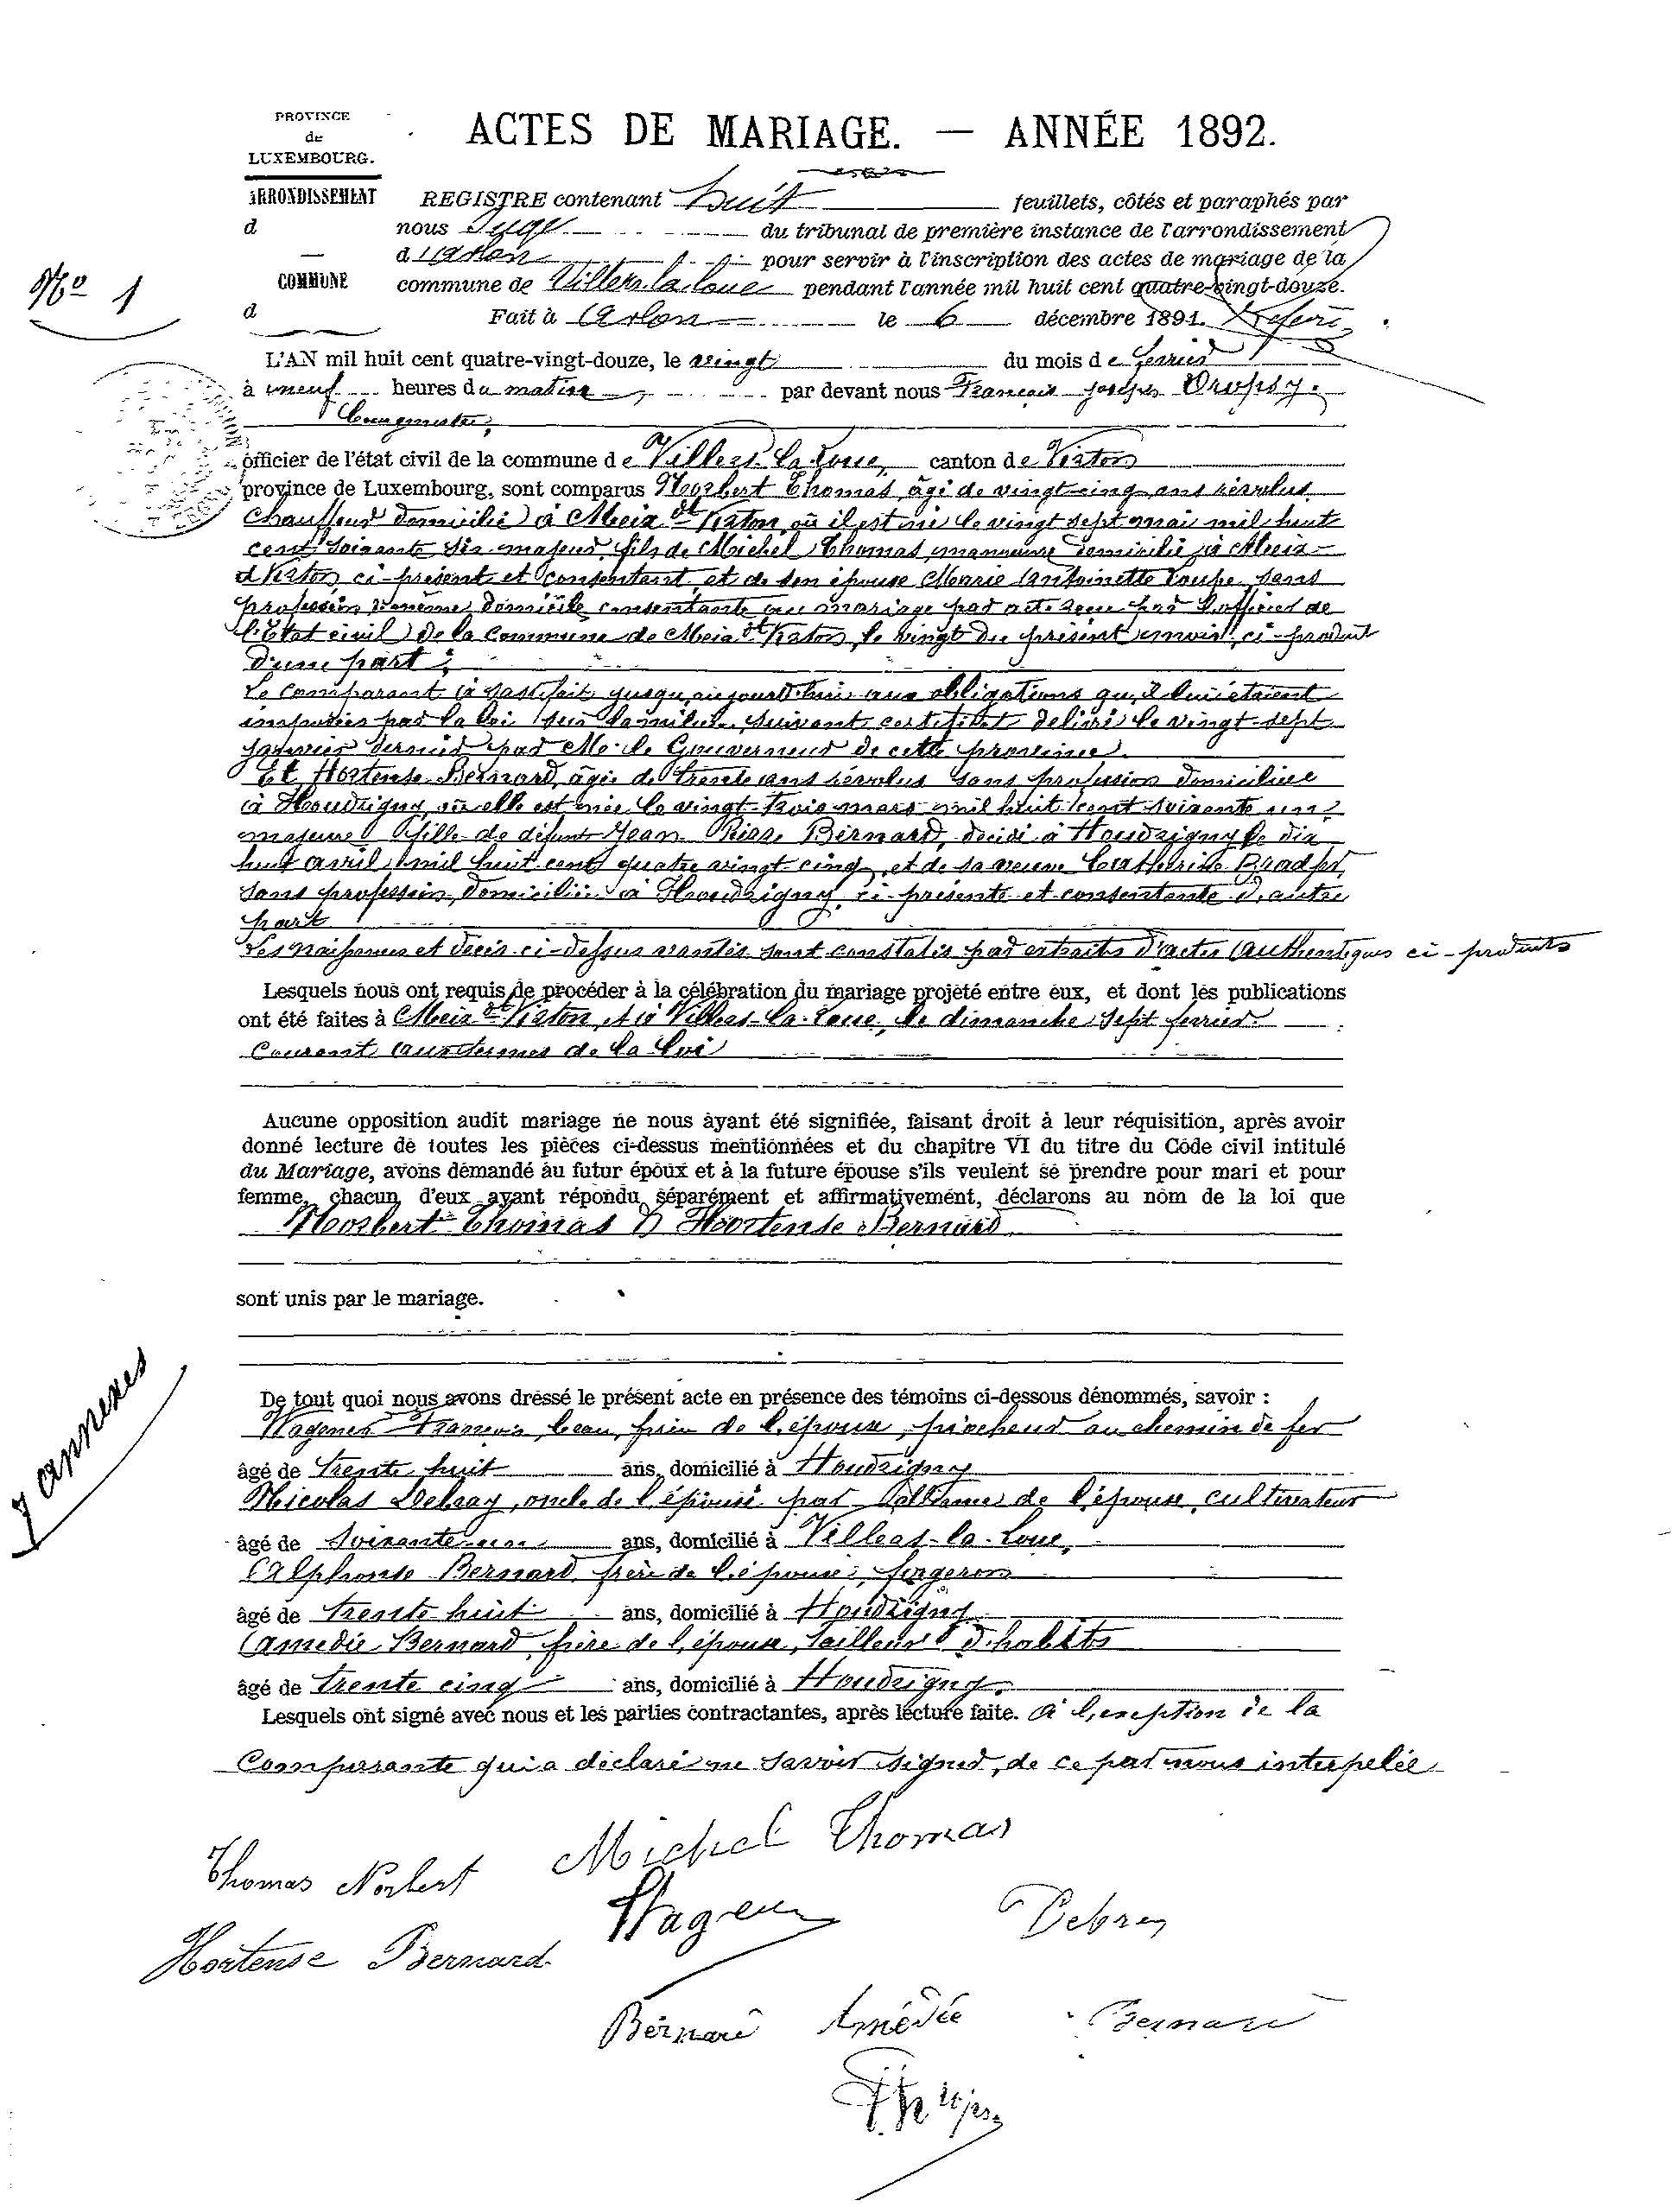 PROVINCE
de
LUXEMBOURG.
ACTES DE MARIAGE. — ANNÉE 1892.
ARRONDISSEMENT
d
COMMUNE
d
No 1
REGISTRE contenant huit feuillets, côtés et paraphés par
nous Juge du tribunal de première instance de l'arrondissement
d'Arlon pour servir à l'inscription des actes de mariage de la
commune de Villers-la-loue pendant l'année mil huit cent quatre-vingt-douze.
Fait à Arlon le 6 décembre 1891.
L'AN mil huit cent quatre-vingt-douze, le vingt du mois de février
à neuf heures du matin, par devant nous François Joseph Dropsy.
bourgmestre,
officier de l'état civil de la commune de Villers-la-Loue, canton de Virton
province de Luxembourg, sont comparus Norbert Thomas, âgé de vingt-cinq ans révolus
chauffeur domicilié à Meix dt Virton, où il est né le vingt sept mai mil huit
cent soixante six majeur, fils de Michel Thomas, manoeuvre domicilié à Meix-
dt Virton, ci-présent et consentant, et de son épouse Marie Antoinette Loupe sans
profession même domicile consentante au mariage par acte reçu par l'officier de
l'état civil de la commune de Meix dt Virton, le vingt du présent mois, ci-produit
d'une part;
Le comparant a satisfait jusqu'aujourd'hui aux obligations qui lui étaient
imposées par la loi sur la milice, suivant certificat délivré le vingt-sept
janvier dernier par Mr le Gouverneur de cette province.
Et Hortense Bernard, âgée de trente ans révolus sans profession domiciliée
à Houdrigny, où elle est née le vingt-trois mars mil huit cent soixante un,
majeure, fille de défunt Jean Pierre Bernard, décédé à Houdrigny le dix
huit avril mil huit cent quatre vingt cinq, et de sa veuve Catherine
sans profession, domiciliée à Houdrigny, ci-présente et consentante d'autre
part
Les naissances et décès ci-dessus vantés sont constatés par extraits d'actes authentiques ci-produits
Lesquels nous ont requis de procéder à la célébration du mariage projeté entre eux, et dont les publications
ont été faites à Meix dt Virton, et à Villers-la-Loue, le dimanche sept février
courant aux termes de la loi
Aucune opposition audit mariage ne nous ayant été signifiée, faisant droit à leur réquisition, après avoir
donné lecture de toutes les pièces ci-dessus mentionnées et du chapitre VI du titre du Code civil intitulé
du Mariage, avons demandé au futur époux et à la future épouse s'ils veulent se prendre pour mari et pour
femme, chacun d'eux ayant répondu séparément et affirmativement, déclarons au nom de la loi que
Norbert Thomas & Hortense Bernard
sont unis par le mariage.
7 annexes
De tout quoi nous avons dressé le présent acte en présence des témoins ci-dessous dénommés, savoir :
Wagener François, beau frère de l'épouse, piocheur au chemin de fer
âgé de trente huit ans, domicilié à Houdrigny
Nicolas Debray, oncle de l'épouse par alliance de l'épouse, cultivateur
âgé de soixante un ans, domicilié à Villers-la-Loue,
Alphonse Bernard, frère de l'épouse, forgeron
âgé de trente huit ans, domicilié à Houdrigny
Amédée Bernard, frère de l'épouse, tailleur d'habits
âgé de trente cinq ans, domicilié à Houdrigny.
Lesquels ont signé avec nous et les parties contractantes, après lecture faite. à l'exeption de la
Comparante qui a déclaré ne savoir signer, de ce par nous interpelée
Michel Thomas
Thomas Norbert
Wagener
Debray
Hortense Bernard
Bernard Amédée
Bernard